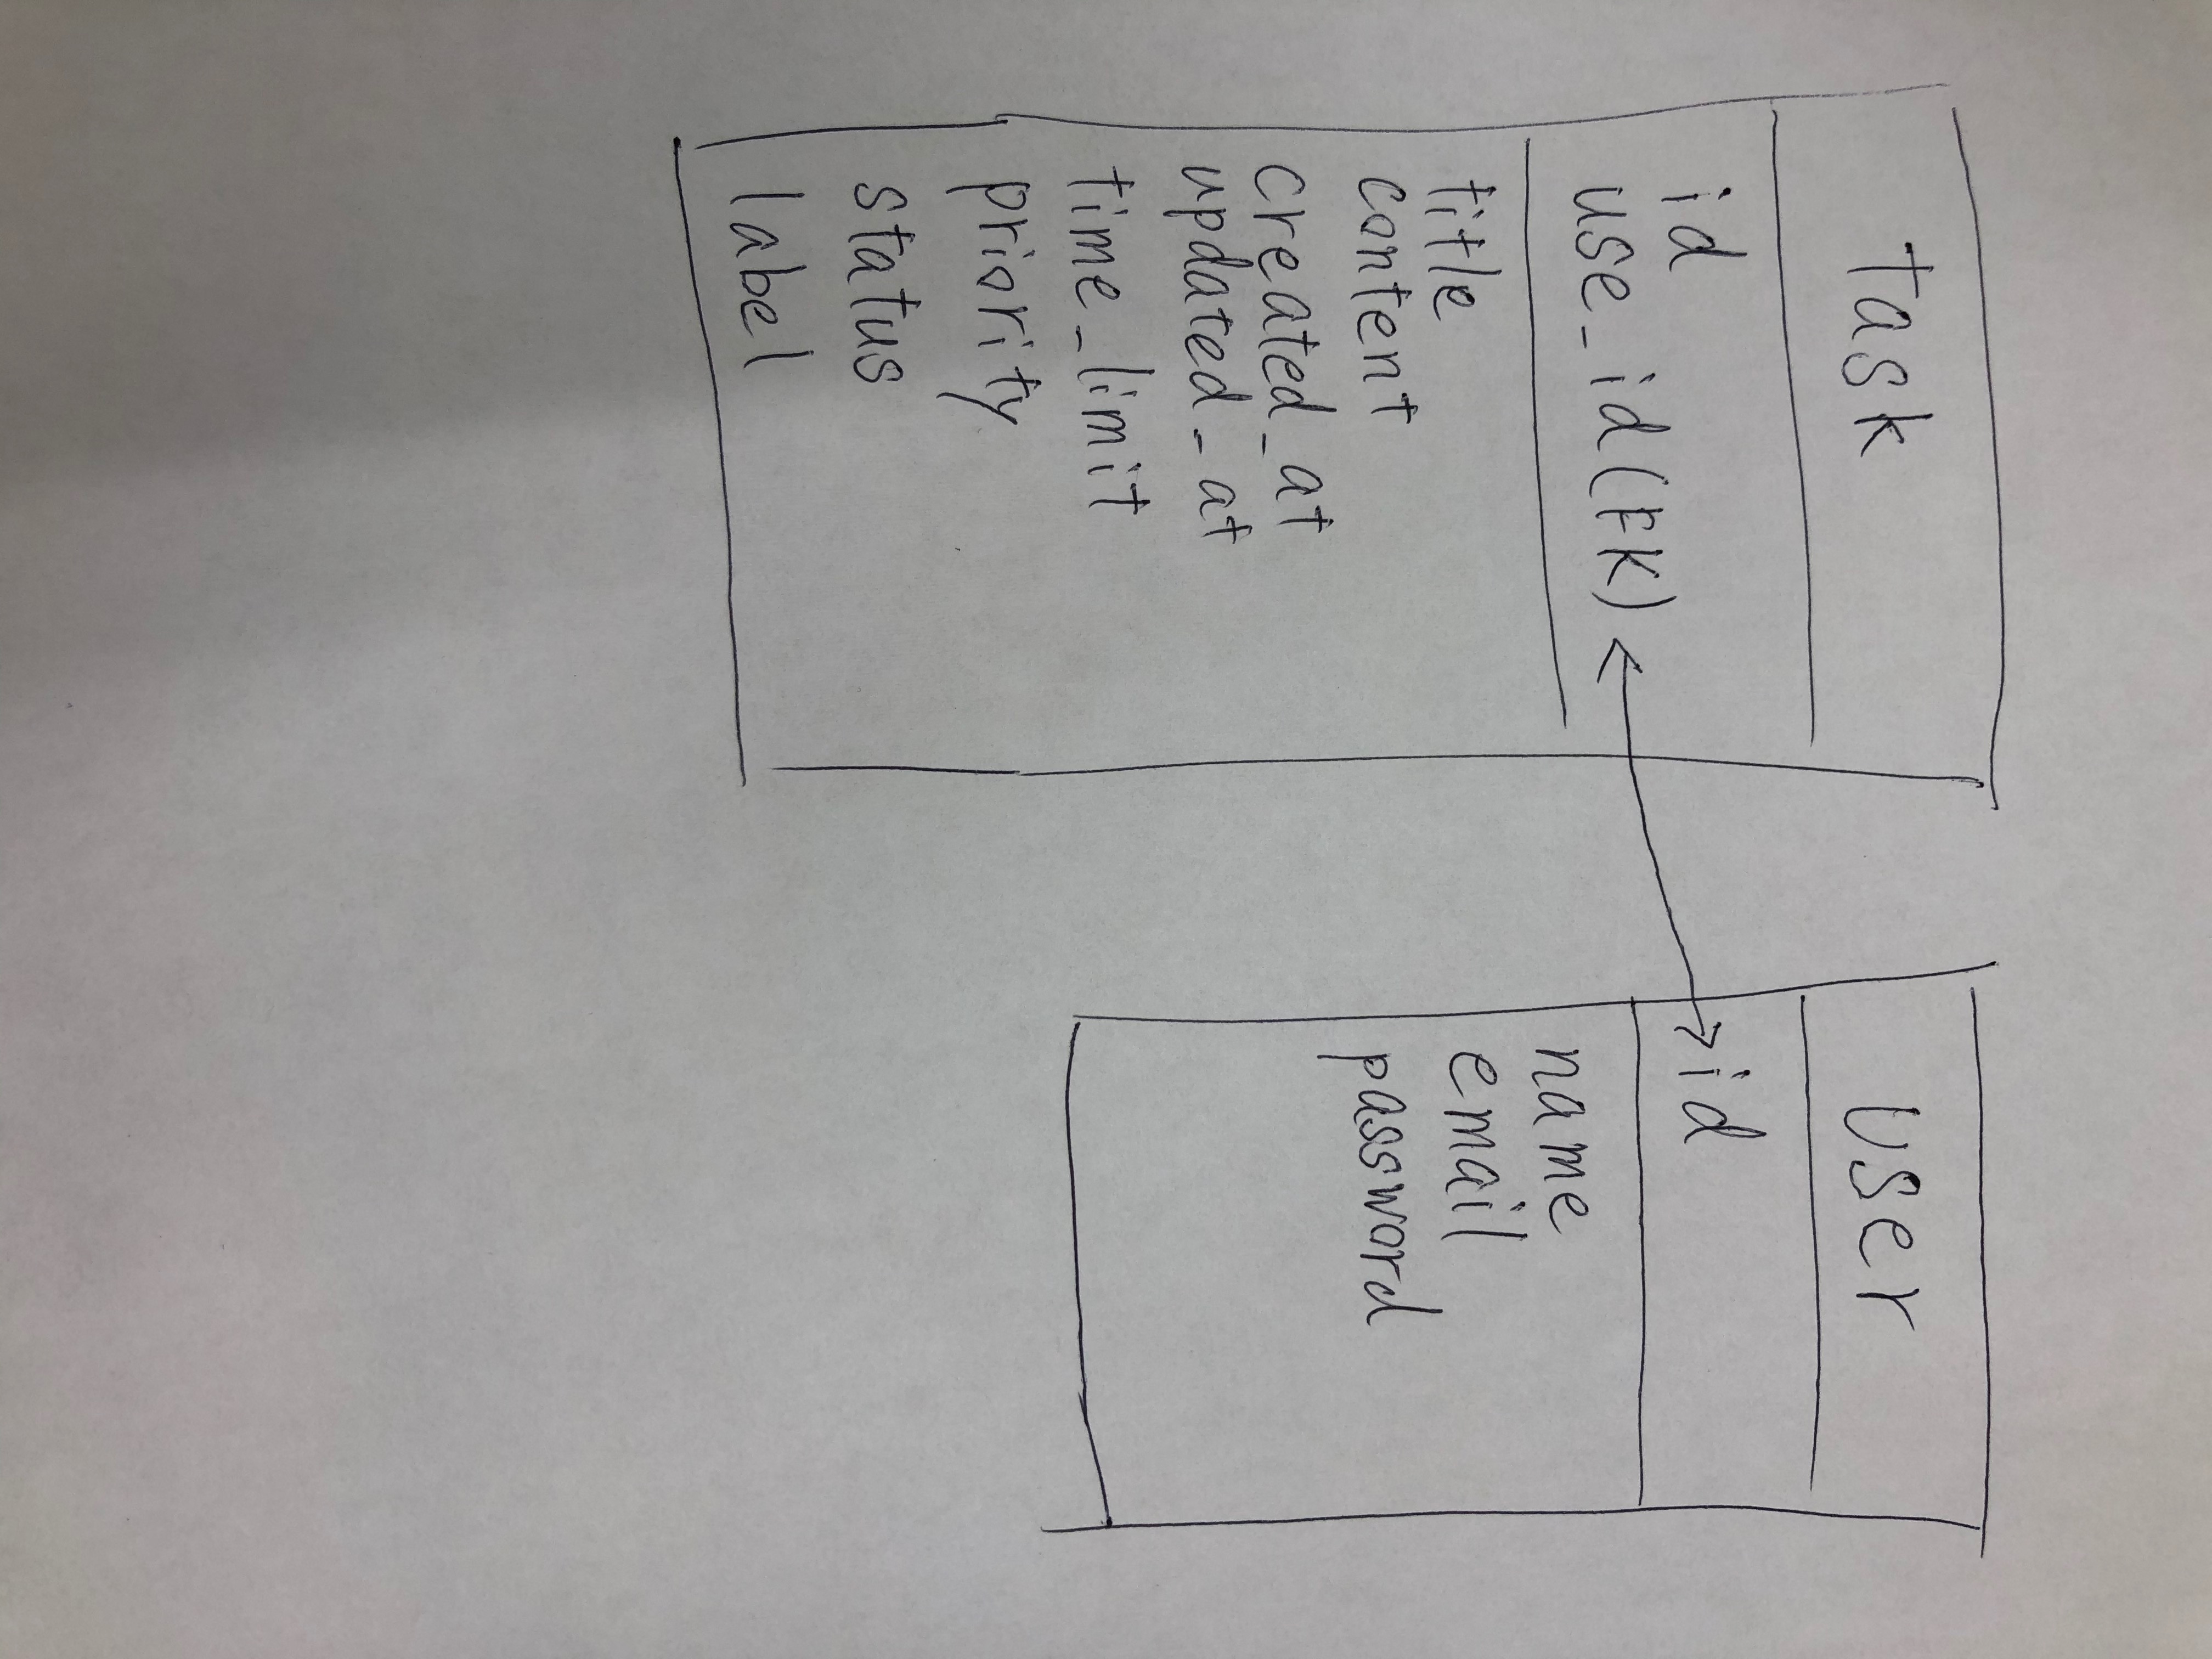 task
id
use_id(FK)
title
content
created_at
updated_at
time_limit
priority
status
label
user
id
name
email
password